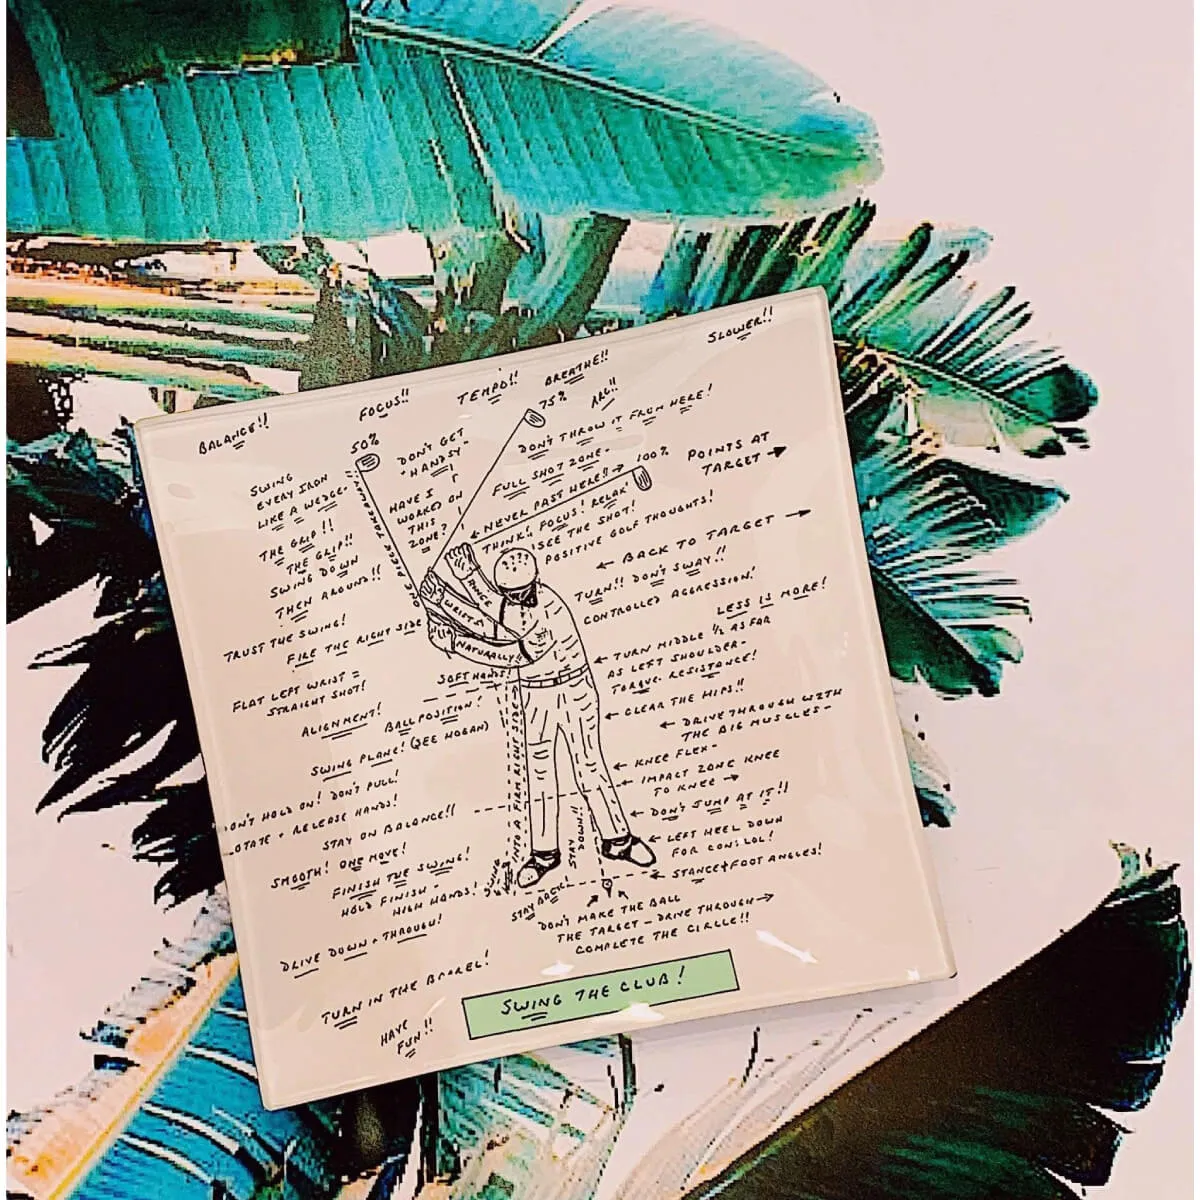 BALANCE!!
FOCUS!!
TEMPO!!
BREATHE!!
SLOWER!!
50%
75%
ARG!!
100%
DON'T GET
HANDSY
!
HAVE I
WORKED ON
THIS
ZONE?
DON'T THROW IT FROM HERE!
FULL SHOT ZONE-
NEVER PAST HERE!!
THINK! FOCUS! RELAX
SEE THE SHOT!
POSITIVE GOLF THOUGHTS!
POINTS AT
TARGET
BACK TO TARGET
TURN!! DON'T SWAY!!
CONTROLLED AGGRESSION!
LESS IS MORE!
TURN MIDDLE 1/2 AS FAR
AS LEFT SHOULDER-
TORQUE. RESISTANCE!
CLEAR THE HIPS!!
DRIVE THROUGH WITH
THE BIG MUSCLES-
KNEE FLEX-
IMPACT ZONE KNEE
TO KNEE
DON'T JUMP AT IT!!
LEFT HEEL DOWN
FOR CON: LOL!
STANCE & FOOT ANGLES!
SWING
EVERY IRON
LIKE A WEDGE-
THE GRIP!!
THE GRIP!!
SWING DOWN
THEN AROUND!!
TRUST THE SWING!
FIRE THE RIGHT SIDE
FLAT LEFT WRIST =
STRAIGHT SHOT!
ALIGNMENT!
SOFT HANDS!
BALL POSITION!
SWING PLANE! (SEE HOGAN)
DON'T HOLD ON! DON'T PULL!
ROTATE + RELEASE HANDS!
STAY ON BALANCE!!
SMOOTH! ONE MOVE!
FINISH THE SWING!
HOLD FINISH -
HIGH HANDS!
DRIVE DOWN + THROUGH!
TURN IN THE BARREL!
HAVE
FUN!!
ONE PIECE TAKEAWAY!!
????
HINGE
WRISTS
NATURALLY!!
INTO A FIRM RIGHT SIDE
STAY
DOWN!!
SWING
STAY BACK!
DON'T MAKE THE BALL
THE TARGET - DRIVE THROUGH
COMPLETE THE CIRCLE!!
SWING THE CLUB!